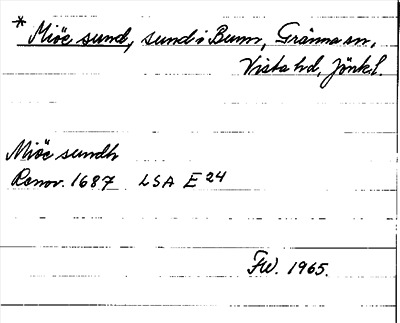 * Miöe sund, sund i Bunn, Gränna sn,
Vista hd, Jönk.l.
Miöe sundh
Renov. 1687 LSA E 24
FW. 1965.